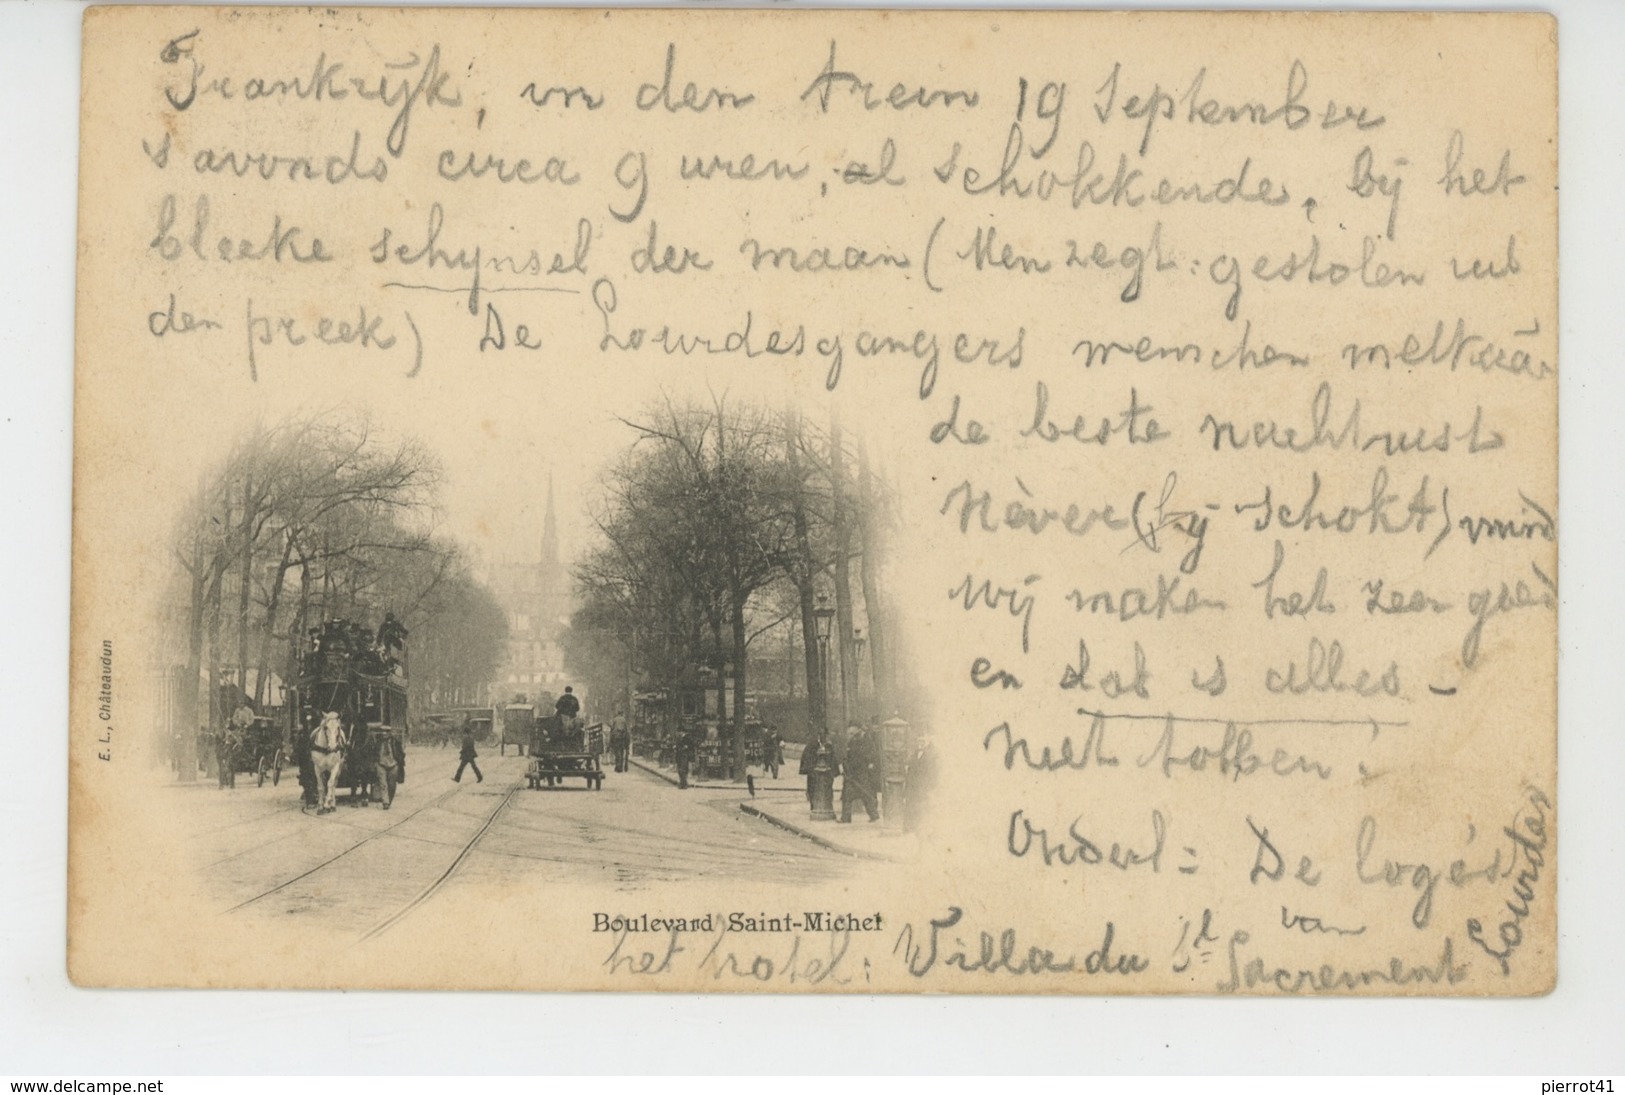 Frankrijk, in den trein 19 September
's avonds circa 9 uren, al schokkende, bij het
bleeke schijnsel der maan (Men zegt: gestolen uit
den preek) De Lourdesgangers wenschen melkaar
de beste nachtrust
Nèver (bij schokt)
Wij maken het zeer goed
en dat is alles -
Niet tobben!
Onderl: De logés
van
het hotel: Villa du St Sacrement
Lourdes
Boulevard Saint-Michel
E. L., Châteaudun
www.delcampe.net
pierrot41